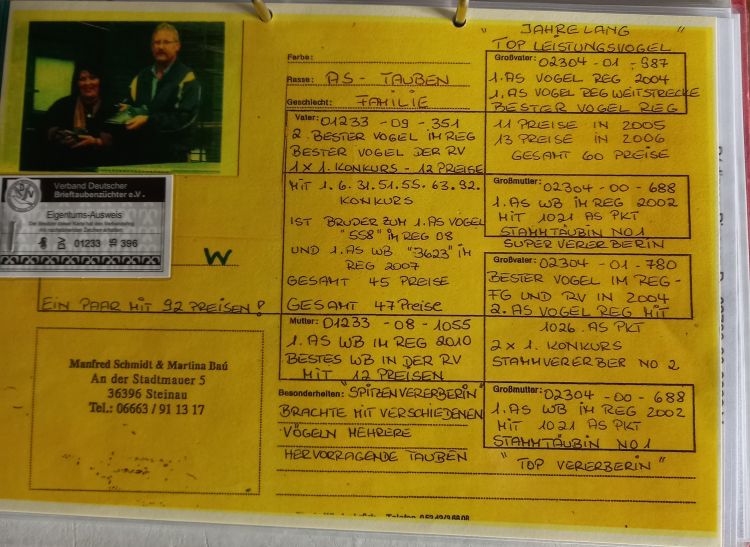 Verband Deutscher
Brieftaubenzüchter e.V.
Eigentums-Ausweis
Der Besitzer dieser Karte hat den Verbandsring
mit nachstehenden Zeichen erhalten:
DV 01233 15 396
W
EIN PAAR MIT 92 PREISEN!
Manfred Schmidt & Martina Baú
An der Stadtmauer 5
36396 Steinau
Tel.: 06663 / 91 13 17
Farbe:
Rasse: AS - TAUBEN
Geschlecht: FAMILIE
Vater: 01233 - 09 - 351
2. BESTER VOGEL IM REG
BESTER VOGEL DER RV
1 x 1. KONKURS - 12 PREISE
MIT 1. 6. 31. 51. 55. 63. 92.
KONKURS
IST BRUDER ZUM 1. AS VOGEL
"558" IM REG 08
UND 1. AS WB "3623" IM
REG 2007
GESAMT 45 PREISE
GESAMT 47 Preise
Mutter: 01233 - 08 - 1055
1. AS WB IM REG 2010
BESTES WB IN DER RV
MIT 12 PREISEN
Besonderheiten: "SPITZENVERERBERIN"
BRACHTE MIT VERSCHIEDENEN
VÖGELN MEHRERE
HERVORRAGENDE TAUBEN
"JAHRELANG"
TOP LEISTUNGSVOGEL
Großvater: 02304 - 01 - 987
1. AS VOGEL REG 2004
1. AS VOGEL REG WEITSTRECKE
BESTER VOGEL REG
11 PREISE IN 2005
13 PREISE IN 2006
GESAMT 60 PREISE
Großmutter: 02304 - 00 - 688
1. AS WB IM REG 2002
MIT 1021 AS PKT
STAMMTÄUBIN NO 1
SUPERVERERBERIN
Großvater: 02304 - 01 - 780
BESTER VOGEL IM REG-
FG UND RV IN 2004
2. AS VOGEL REG MIT
1026 AS PKT
2 x 1. KONKURS
STAMMVERERBER NO 2
Großmutter: 02304 - 00 - 688
1. AS WB IM REG 2002
MIT 1021 AS PKT
STAMMTÄUBIN NO 1
"TOP VERERBERIN"